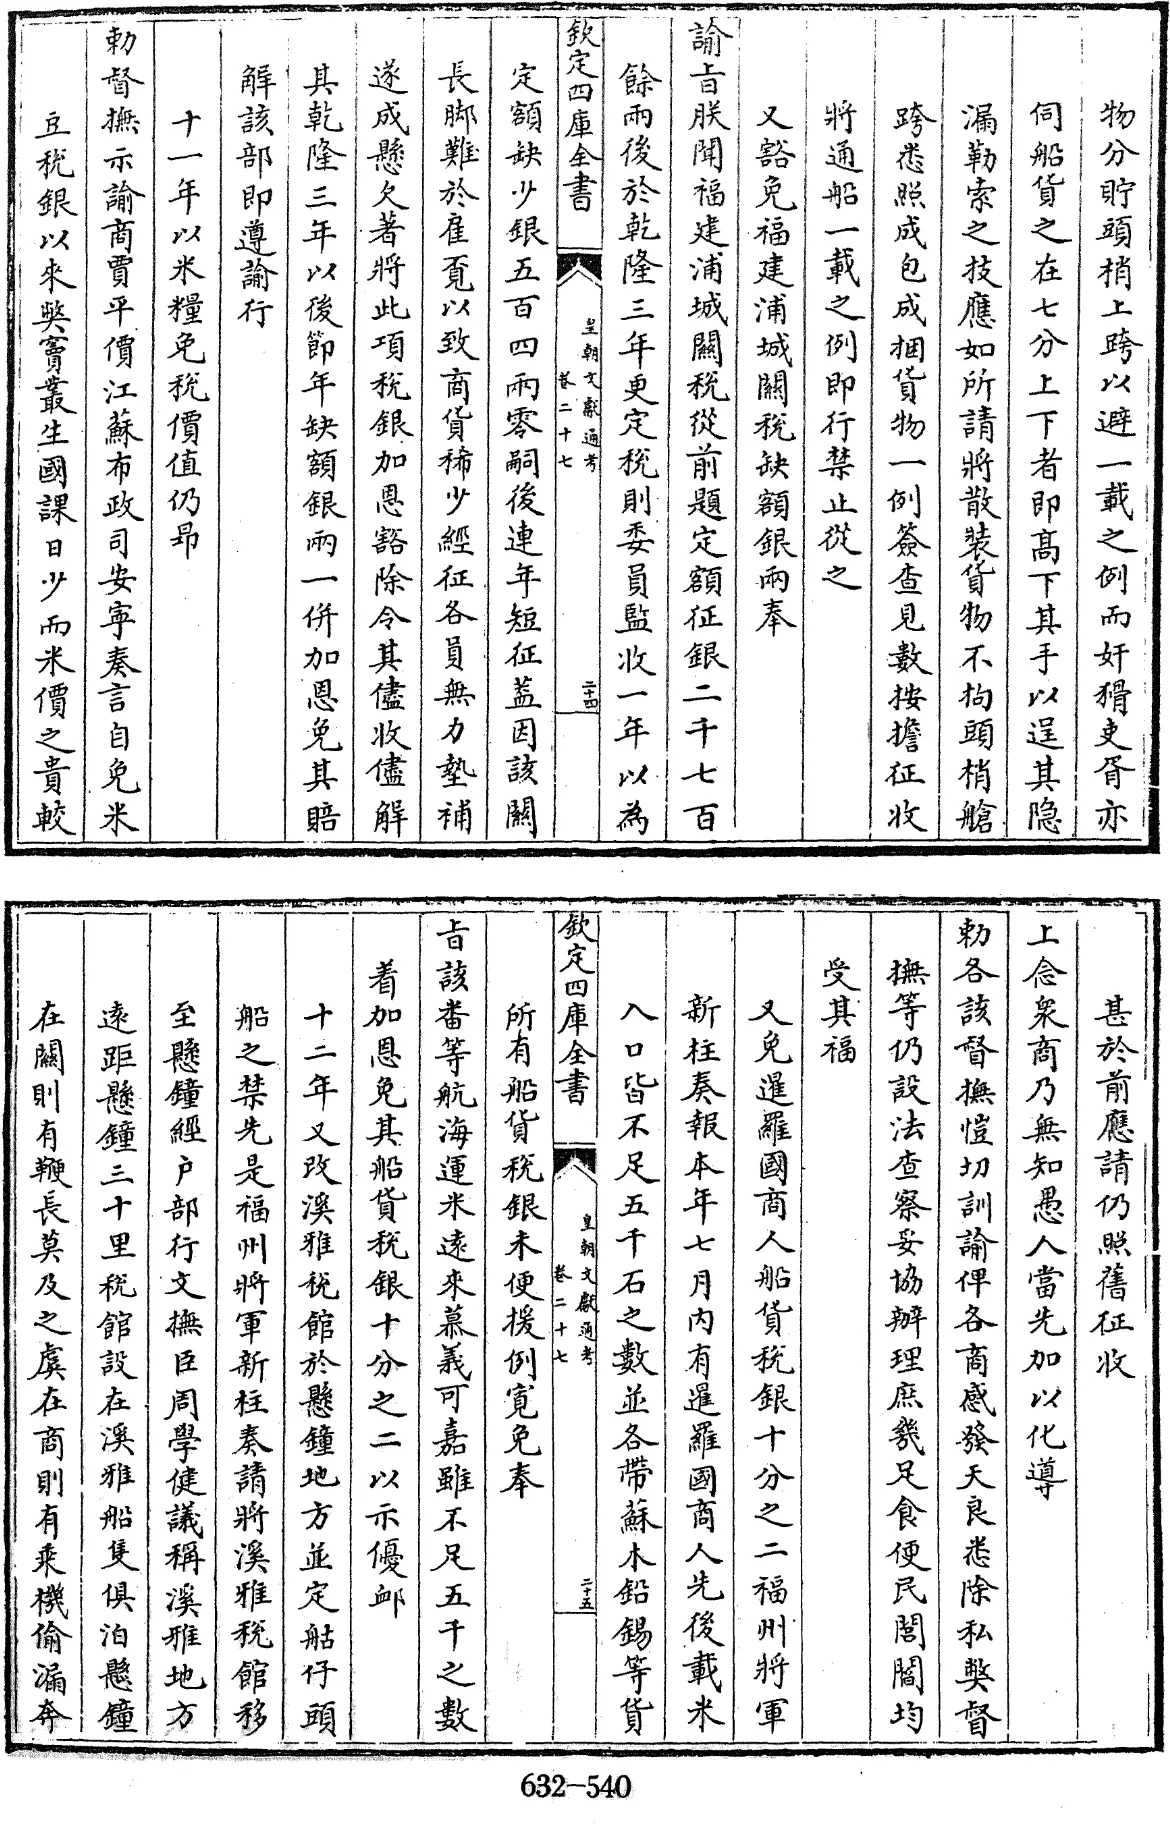 物分貯頭梢上跨以避一載之例而奸猾吏胥亦
伺船貨之在七分上下者即髙下其手以逞其隐
漏勒索之技應如所請將散裝貨物不拘頭梢艙
跨悉照成包成捆貨物一例簽查見數按擔征收
將通船一載之例即行禁止從之
又豁免福建浦城關税缺額銀兩奉
諭㫖朕聞福建浦城關税從前題定額征銀二千七百
餘兩後於乾隆三年更定税則委員監收一年以為
欽定四庫全書
皇朝文獻通考
卷二十七
二十四
定額缺少銀五百四兩零嗣後連年短征葢因該關
長脚難於雇覔以致商貨稀少經征各員無力墊補
遂成懸欠著將此項税銀加恩豁除令其儘收儘解
其乾隆三年以後節年缺額銀兩一併加恩免其賠
解該部即遵諭行
十一年以米糧免税價值仍昂
勅督撫示諭商賈平價江蘇布政司安寜奏言自免米
豆税銀以來奬竇叢生國課日少而米價之貴較
甚於前應請仍照舊征收
上念衆商乃無知愚人當先加以化導
勅各該督撫愷切訓諭俾各商感發天良悉除私奬督
撫等仍設法查察妥協辦理庶幾足食便民閭閻均
受其福
又免暹羅國商人船貨税銀十分之二福州將軍
新柱奏報本年七月内有暹羅國商人先後載米
入口皆不足五千石之數並各帶蘇木鉛錫等貨
欽定四庫全書
皇朝文獻通考
卷二十七
二十五
所有船貨税銀未便援例寛免奉
㫖該番等航海運米逺來慕義可嘉雖不足五千之數
着加恩免其船貨税銀十分之二以示優䘏
十二年又改溪雅税館於懸鐘地方並定舡仔頭
船之禁先是福州將軍新柱奏請將溪雅税館移
至懸鐘經户部行文撫臣周學健議稱溪雅地方
逺距懸鐘三十里税館設在溪雅船隻俱泊懸鐘
在關則有鞭長莫及之虞在商則有乘機偷漏奔
632-540